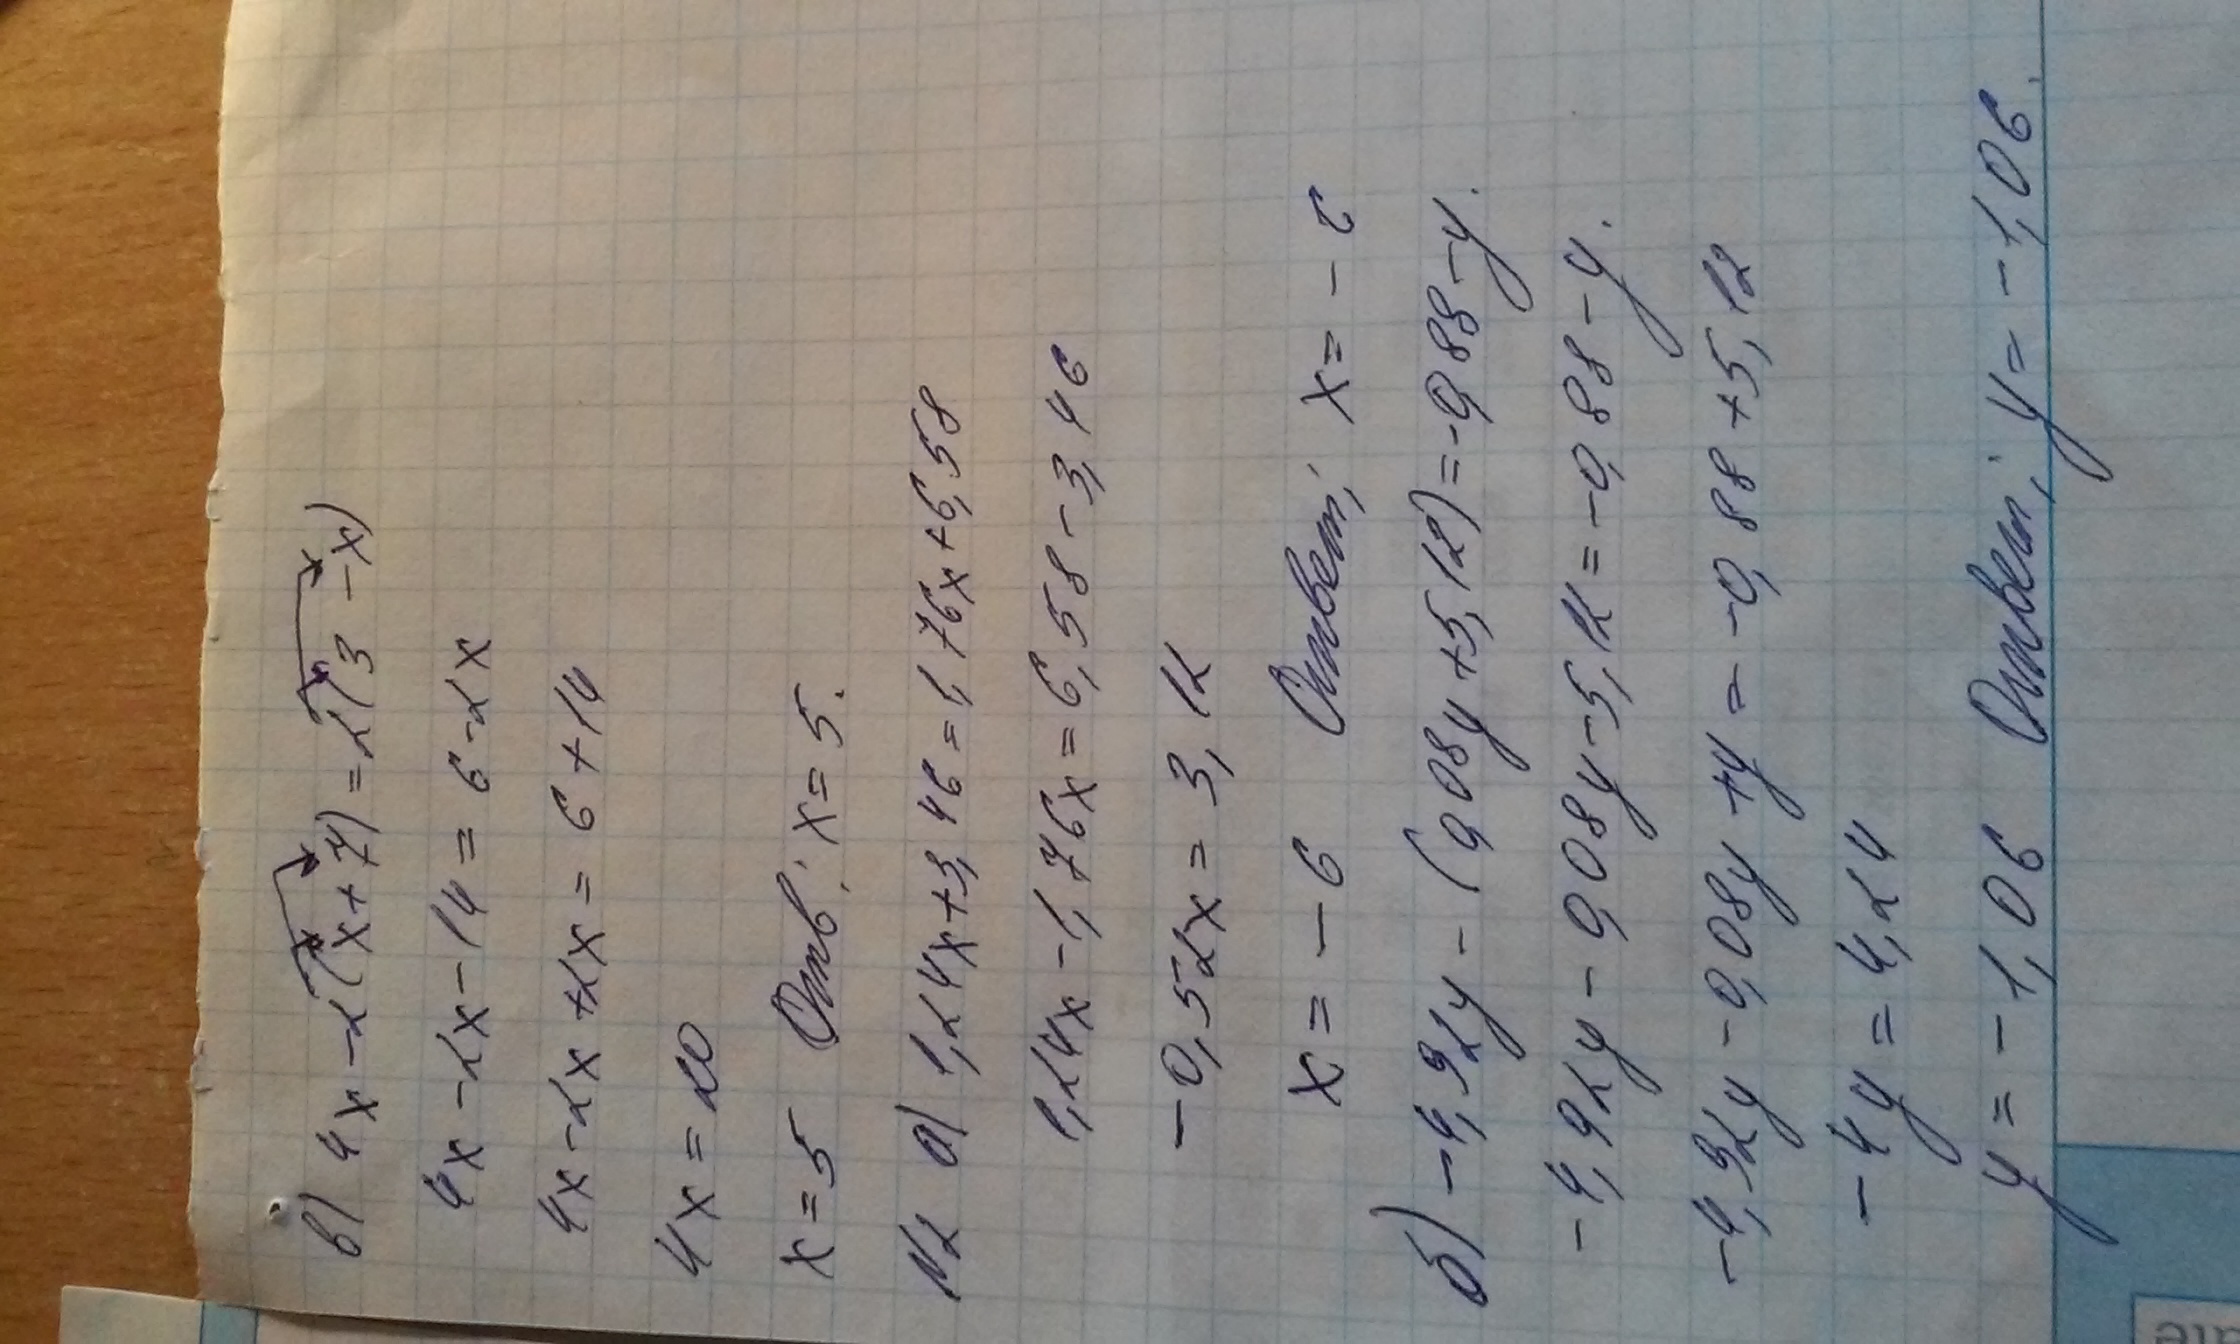 в) 4x-2(x+7)=2(3-x)
4x-2x-14=6-2x
4x-2x+2x=6+14
4x=20
x=5 Отв: x=5.
N2 а) 1,24x+3,46=1,76x+6,58
1,24x-1,76x=6,58-3,46
-0,52x=3,12
x=-6 Ответ: x=-6
б) -4,92y-(0,08y+5,12)=-0,88-y.
-4,92y-0,08y-5,12=-0,88-y.
-4,92y-0,08y+y=-0,88+5,12
-4y=4,24
y=-1,06 Ответ: y=-1,06.